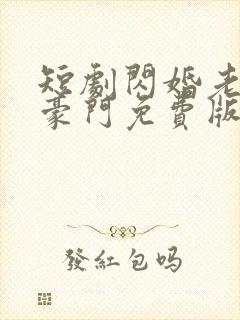 短劇閃婚老
豪門免費版
發紅包吗